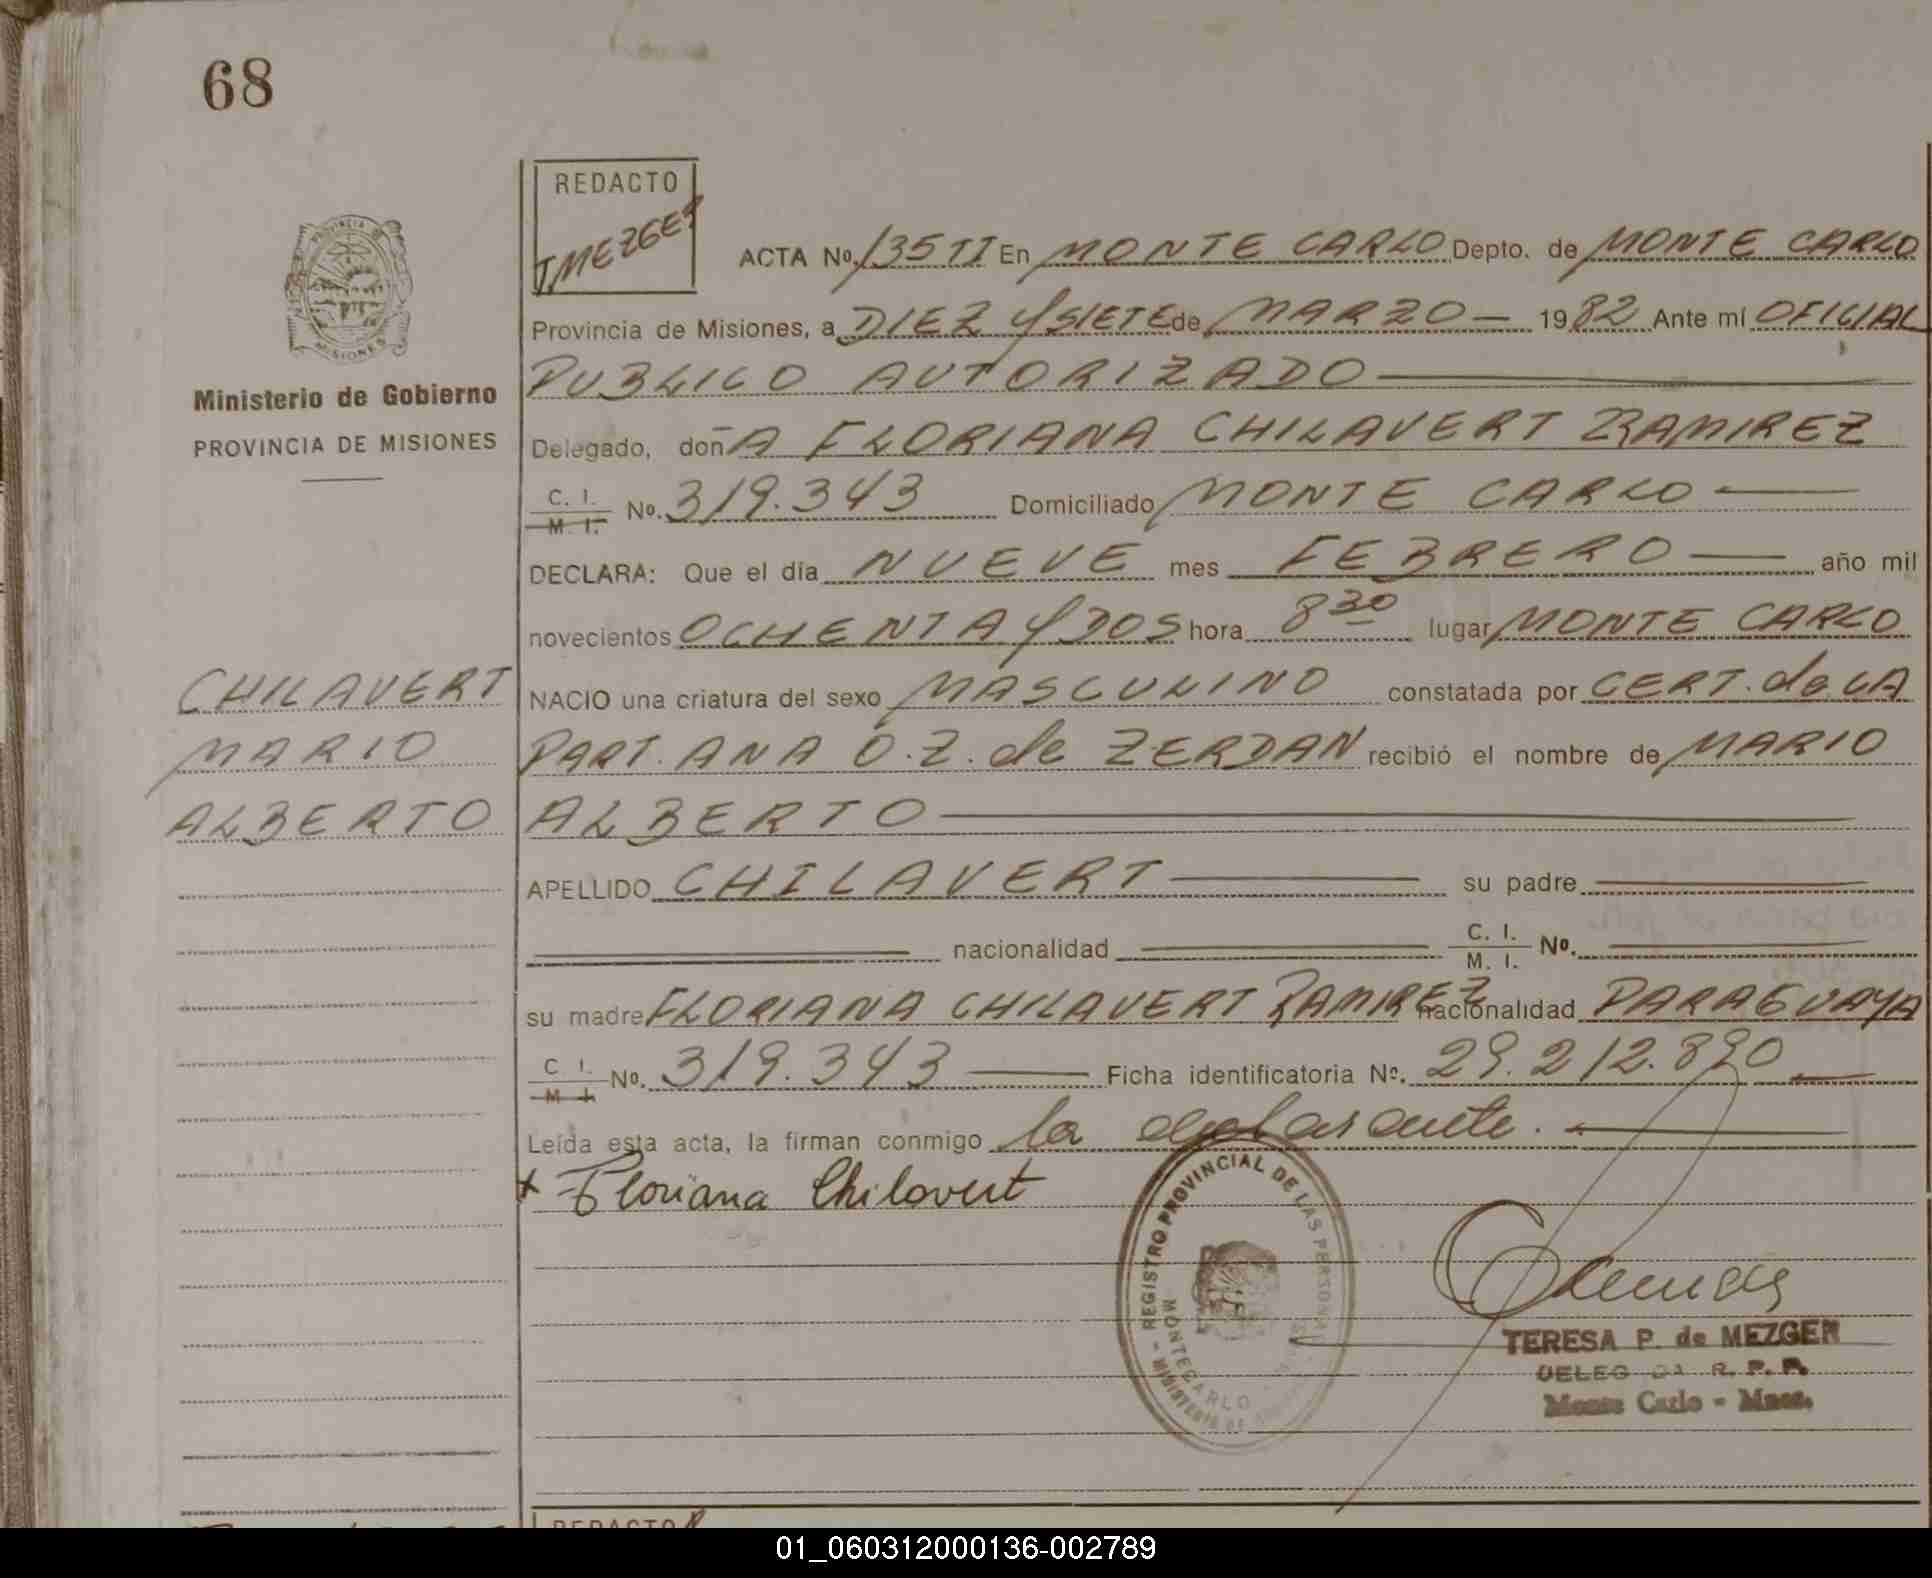 68
REDACTO
TMEZGER
ACTA Nº 135 TI En MONTE CARLO Depto. de MONTE CARLO
Provincia de Misiones, a DIEZ Y SIETE de MARZO — 1982 Ante mí OFICIAL
PUBLICO AUTORIZADO —
Delegado, doñA FLORIANA CHILAVERT RAMIREZ
C. I. M. I. Nº. 319.343 Domiciliado MONTE CARLO —
DECLARA: Que el día NUEVE mes FEBRERO — año mil
novecientos OCHENTA Y DOS hora 8 30 lugar MONTE CARLO
NACIO una criatura del sexo MASCULINO constatada por CERT. de LA
PART. ANA O. Z. de ZERDAN recibió el nombre de MARIO
ALBERTO —
APELLIDO CHILAVERT — su padre —
— nacionalidad — C. I. M. I. Nº. —
su madre FLORIANA CHILAVERT RAMIREZ nacionalidad PARAGUAYA
C. I. M. I. Nº. 319.343 — Ficha identificatoria Nº. 29.212.890 —
Leída esta acta, la firman conmigo la declarante. —
x Floriana Chilavert
PROVINCIA DE MISIONES
Ministerio de Gobierno
PROVINCIA DE MISIONES
CHILAVERT
MARIO
ALBERTO
REGISTRO PROVINCIAL DE LAS PERSONAS
MONTECARLO
MINISTERIO DE
TERESA P. de MEZGER
DELEGADA R. P. P.
Monte Carlo - Mnes.
REDACTO
01_060312000136-002789